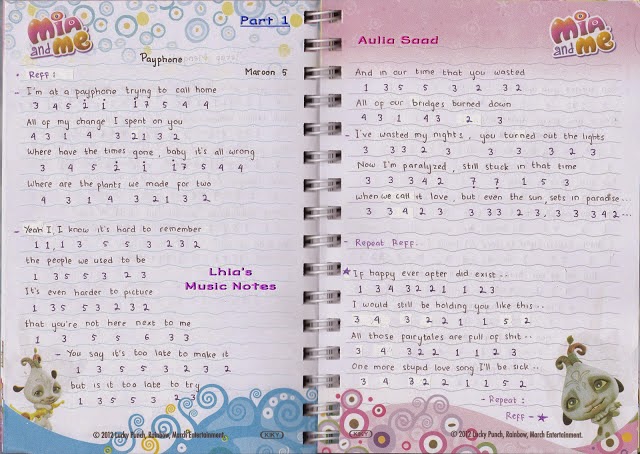 Mia and me
Part 1
Payphone
• Reff :
Maroon 5
- I'm at a payphone trying to call home
3 4 5 2 i i 7 5 4 4
All of my change I spent on you
4 3 1 4 3 2 1 3 2
Where have the times gone, baby it's all wrong
3 4 5 2 i i 7 5 4 4
Where are the plants we made for two
4 3 1 4 3 2 1 3 2
- Yeah I, I know it's hard to remember
1 1, 1 3 5 5 3 2 3 2
the people we used to be
1 3 5 5 3 2 3
It's even harder to picture
1 3 5 5 3 2 3 2
that you're not here next to me
1 3 5 5 6 3 3
- You say it's too late to make it
1 3 5 5 3 2 3 2
but is it too late to try
1 3 5 5 3 2 3
Lhia's
Music Notes
© 2012 Lucky Punch, Rainbow, March Entertainment.
KIKY
Aulia Saad
Mia and me
And in our time that you wasted
1 3 5 5 3 2 3 2
All of our bridges burned down
4 3 1 4 3 2 3
- I've wasted my nights, you turned out the lights
3 3 3 2 3 3 3 3 2 3
Now I'm paralyzed, still stuck in that time
3 3 3 4 2 7 7 1 5 3
when we call it love, but even the sun sets in paradise...
3 3 4 2 3 3 3 3 2 3, 3 3 3 4 2...
- Repeat Reff.
★ If happy ever apter did exist...
1 3 4 3 2 2 1 1 2 3
I would still be holding you like this...
3 4 3 2 2 1 1 5 2
All those fairytales are full of shit..
3 4 3 2 2 1 1 2 3
One more stupid love song I'll be sick..
3 4 3 2 2 1 1 5 2
- Repeat :
Reff - ★
© 2012 Lucky Punch, Rainbow, March Entertainment.
KIKY